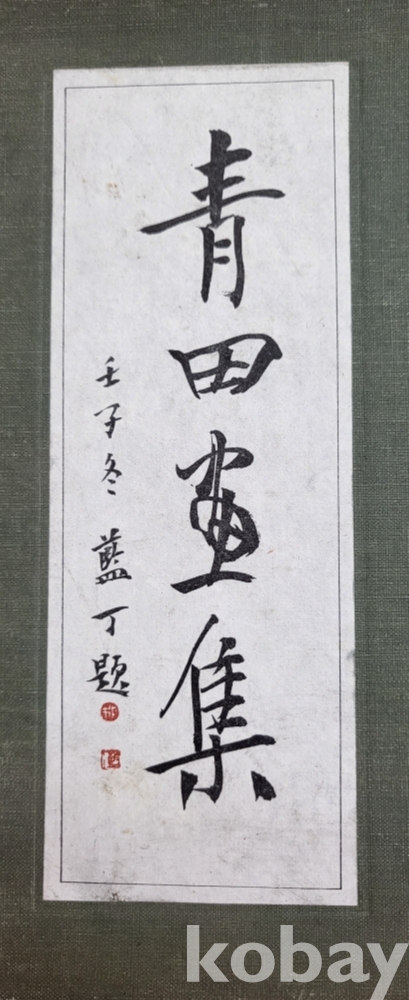 青田畫集
壬子冬 藍丁題
kobay